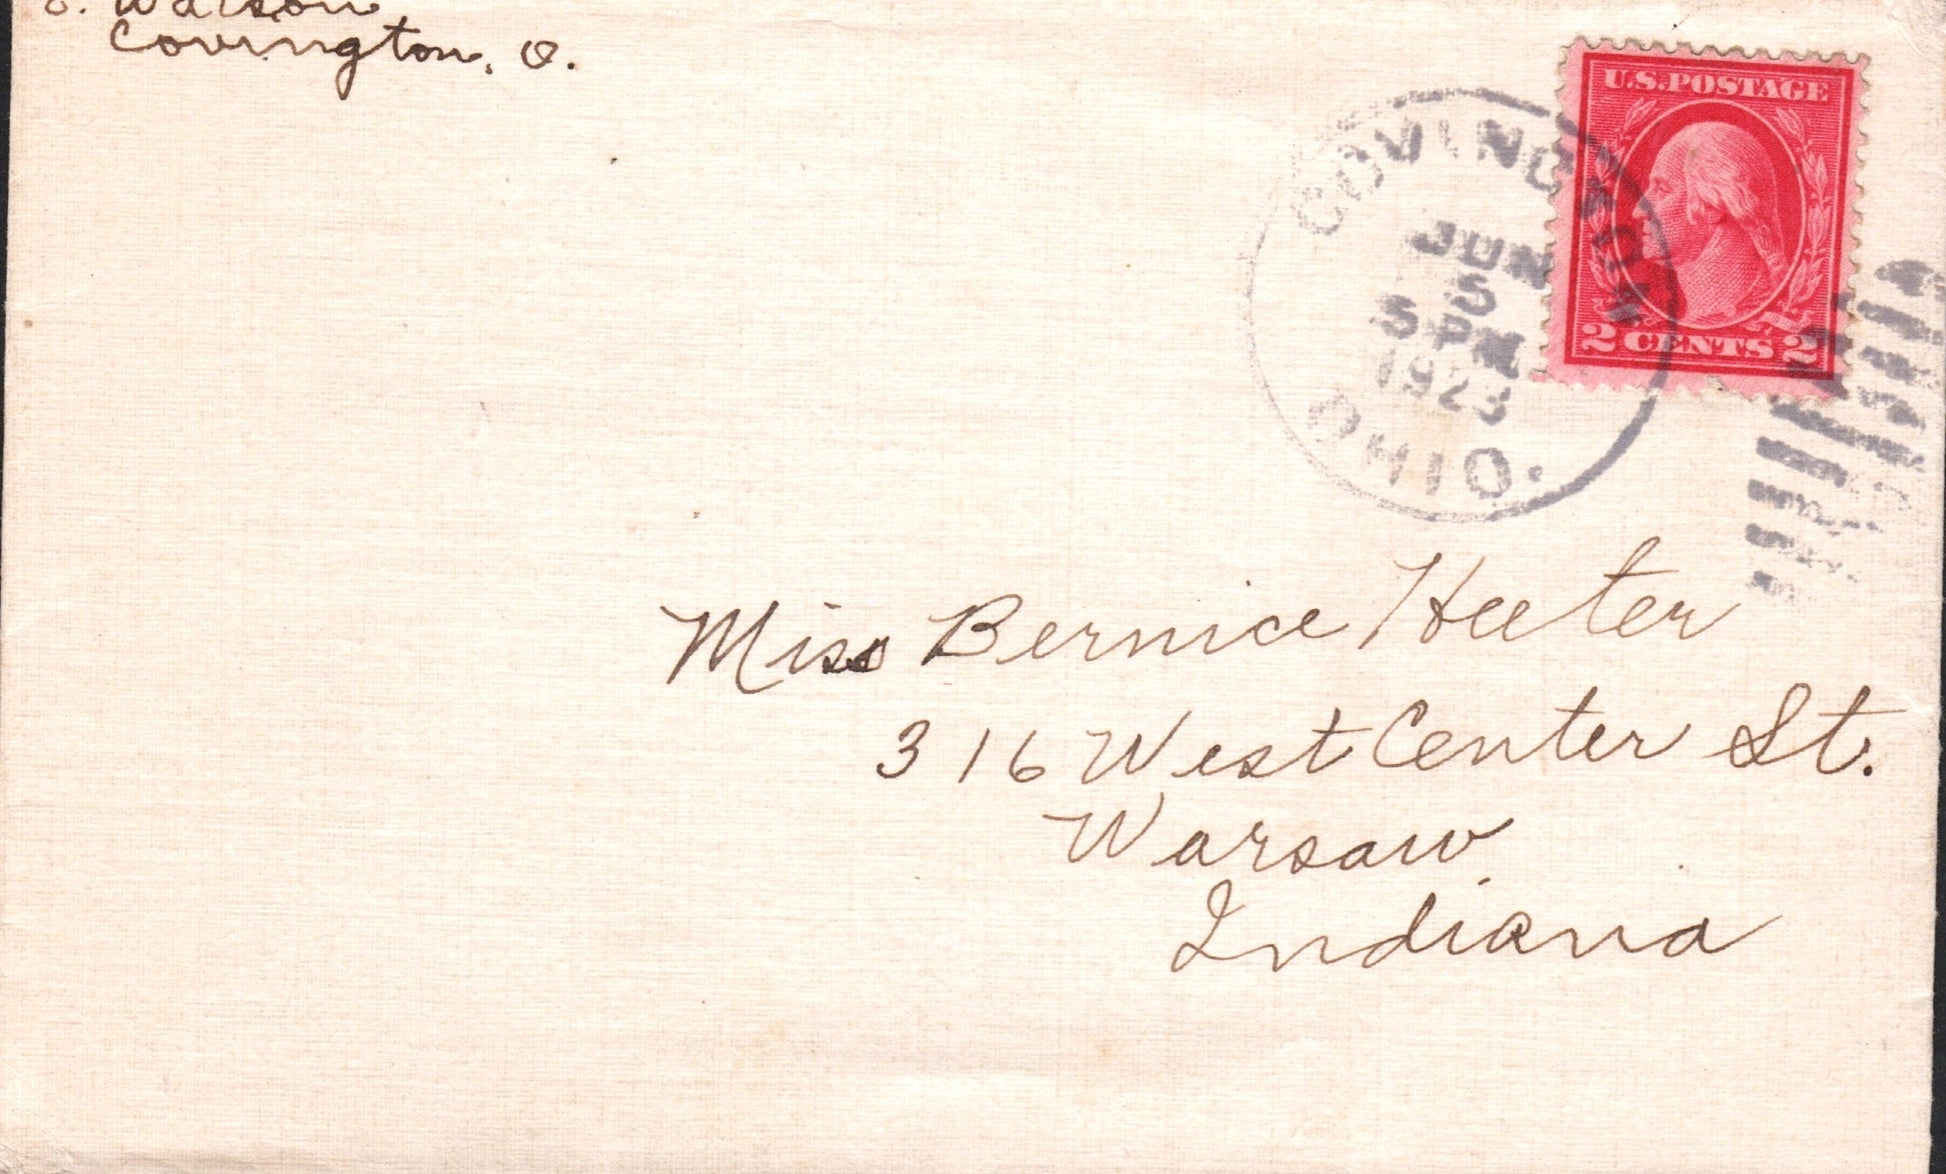 Covington, O.
U.S. POSTAGE
2 CENTS 2
COVINGTON
JUN
5
5 PM
1923
OHIO.
Miss Bernice Heeter
316 West Center St.
Warsaw
Indiana